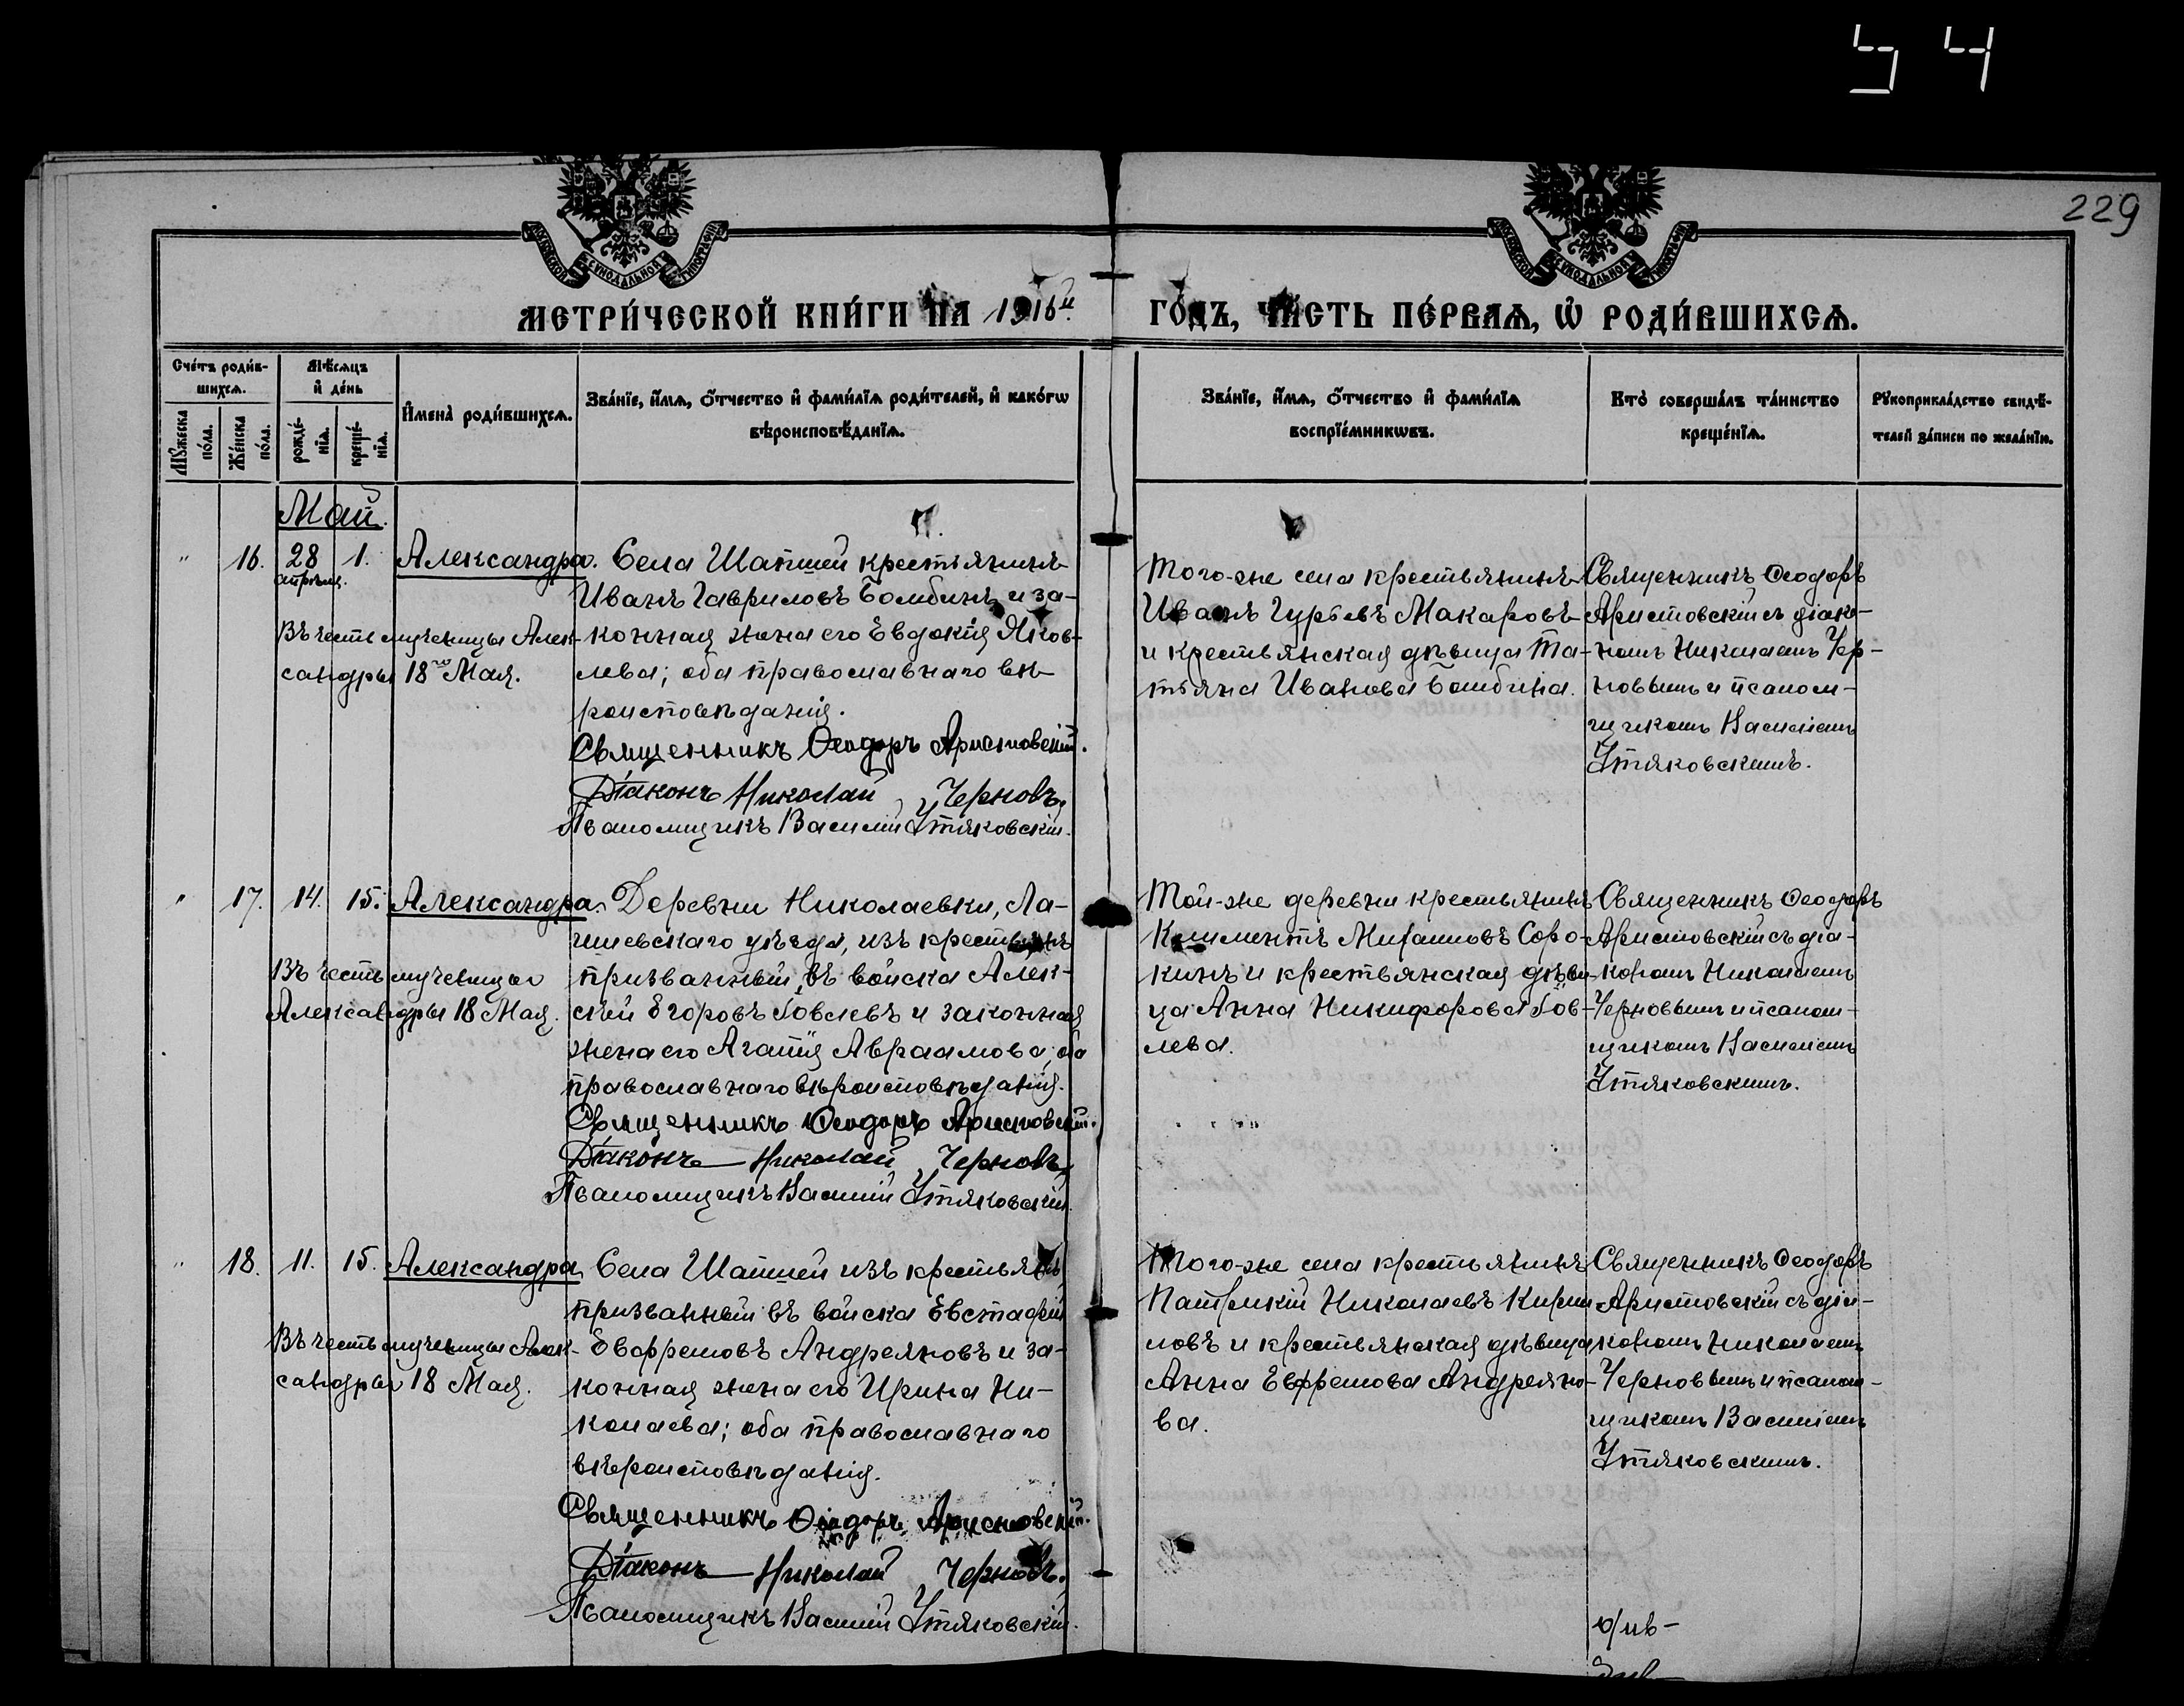 54
229
МЕТРИ́ЧЕСКОЙ КНИ́ГИ НА 1916й
ГО́ДЪ, ЧА́СТЬ ПЕ́РВАѦ, Ѡ҆ РОДИ́ВШИХСѦ.
Сче́тъ роди́в-
шихсѧ.
Мꙋ́жеска по́ла.
Же́нска по́ла.
Мѣ́сѧцъ
и҆ де́нь
рожде́-
нїѧ.
креще́-
нїѧ.
И҆мена̀ роди́вшихсѧ.
Зва́нїе, и҆́мѧ, ѻ҆́тчество и҆ фами́лїѧ роди́телей, и҆ како́гѡ
вѣроисповѣ́данїѧ.
Зва́нїе, и҆́мѧ, ѻ҆́тчество и҆ фами́лїѧ
воспрїе́мникѡвъ.
Кто̀ соверша́лъ та́инство
креще́нїѧ.
Рꙋкоприкла́дство свидѣ́-
телей за́писи по жела́нїю.
Май.
" 16. 28 апрѣля. 1. Александра.
Въ честь мученицы Алек-
сандры 18го Мая.
Села Шапшей крестьянинъ
Иванъ Гавриловъ Бомбинъ и за-
конная жена его Евдокія Яков-
лева; оба православнаго вѣ-
роисповѣданія.
Священникъ Ѳеодоръ Аристовскій.
Діаконъ Николай Черновъ.
Псаломщикъ Василій Утяковскій.
Того-же села крестьянинъ
Иванъ Гурьевъ Макаровъ
и крестьянская дѣвица Та-
тьяна Иванова Бомбина.
Священникъ Ѳеодоръ
Аристовскій съ діако-
номъ Николаемъ Чер-
новымъ и псалом-
щикомъ Василіемъ
Утяковскимъ.
" 17. 14. 15. Александра.
Въ честь мученицы
Александры 18 Мая.
Деревни Николаевки, Ла-
ишевскаго уѣзда, изъ крестьянъ
призванный въ войска Алек-
сѣй Егоровъ Говлевъ и законная
жена его Агапія Авраамова, оба
православнаго вѣроисповѣданія.
Священникъ Ѳеодоръ Аристовскій.
Діаконъ Николай Черновъ.
Псаломщикъ Василій Утяковскій.
Той-же деревни крестьянинъ
Климентъ Михаиловъ Соро-
кинъ и крестьянская дѣви-
ца Анна Никифорова Гов-
лева.
Священникъ Ѳеодоръ
Аристовскій съ діа-
кономъ Николаемъ
Черновымъ и псалом-
щикомъ Василіемъ
Утяковскимъ.
" 18. 11. 15. Александра
Въ честь мученицы Алек-
сандры 18 Мая.
Села Шапшей изъ крестьянъ
призванный въ войска Евстафій
Евфремовъ Андреяновъ и за-
конная жена его Ирина Ни-
колаева; оба православнаго
вѣроисповѣданія.
Священникъ Ѳеодоръ Аристовскій.
Діаконъ Николай Черновъ.
Псаломщикъ Василій Утяковскій.
Того-же села крестьянинъ
Патрикій Николаевъ Кирил-
ловъ и крестьянская дѣвица
Анна Евфремова Андреяно-
ва.
Священникъ Ѳеодоръ
Аристовскій съ діа-
кономъ Николаемъ
Черновымъ и псалом-
щикомъ Василіемъ
Утяковскимъ.